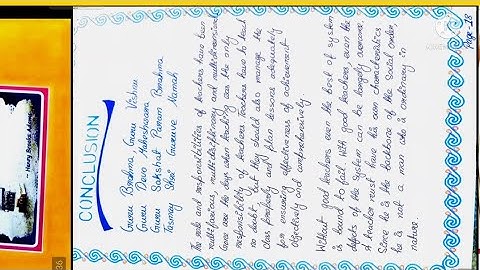 CONCLUSION
Guru Bramha, Guru Vishnu
Guru Devo Maheshwara
Guru Sakshat Param Bramha
Tasmay Shri Guruve Namah
The role and responsibilities of teachers have been
multifarious, multidisciplinary and multidimensional.
Gone are the days when teaching was the only
responsibility of teachers. Teachers have to teach
no doubt, but they should also manage the
class properly and plan lessons adequately
for ensuring effectiveness of achievement
objectively and comprehensively.
Without good teachers even the best of system
is bound to fail. With good teachers, even the
defects of the system can be largely overcome.
A teacher must have his own characteristics
Since he is the backbone of the social order,
he is not a man who is ordinary in
nature.
Page-18
36